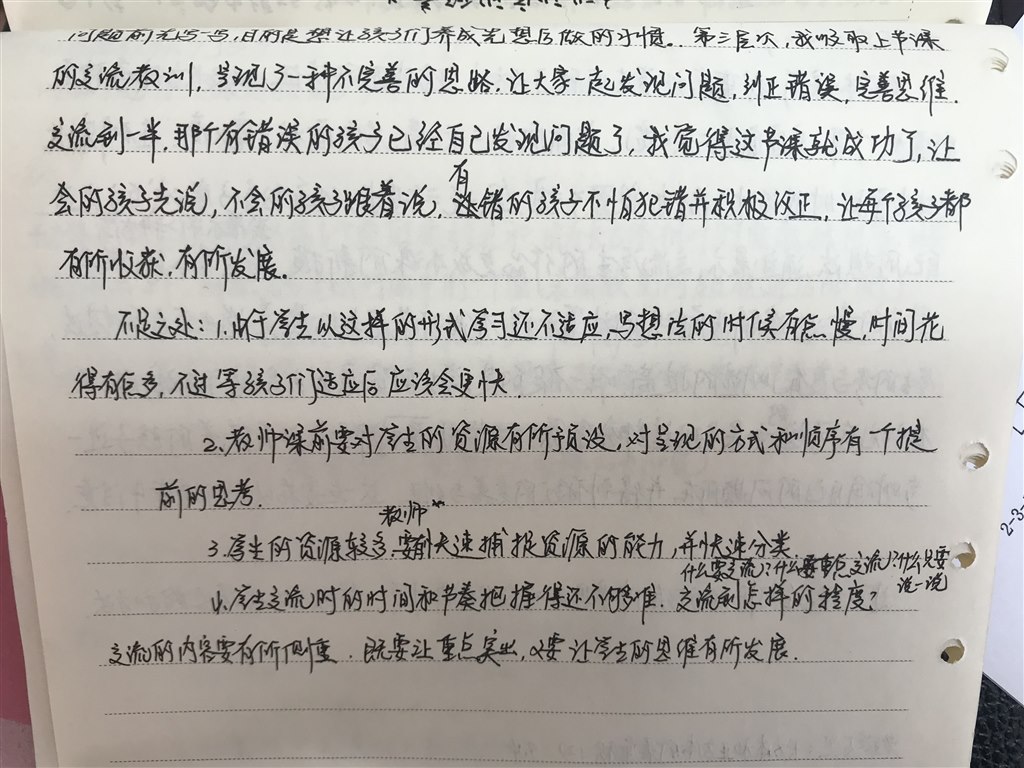 问题前先写一写,目的是想让孩子们养成先想后做的习惯。第三层次,我吸取上节课
的交流教训,呈现了一种不完善的思路,让大家一起发现问题,纠正错误,完善思维.
交流到一半,那个有错误的孩子已经自己发现问题了,我觉得这节课就成功了,让
会的孩子先说,不会的孩子跟着说,有错的孩子不怕犯错并积极改正,让每个孩子都
有所收获,有所发展.
不足之处:1.由于学生以这样的形式学习还不适应,写想法的时候有点慢,时间花
得有点多,不过等孩子们适应后应该会更快.
2.教师课前要对学生的资源有所预设,对呈现的方式和顺序有一个提
前的思考.
3.学生的资源较多,教师要有快速捕捉资源的能力,并快速分类
什么要交流?什么要重点交流?什么只要
说一说
4.学生交流时的时间和节奏把握得还不够准.交流到怎样的程度?
交流的内容要有所侧重.既要让重点突出,又要让学生的思维有所发展.
2-3-